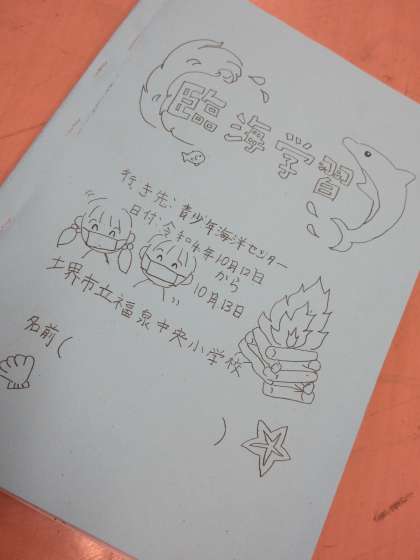 臨海学習
行き先：青少年海洋センター
日付：令和4年10月12日
から
10月13日
堺市立福泉中央小学校
名前（
）